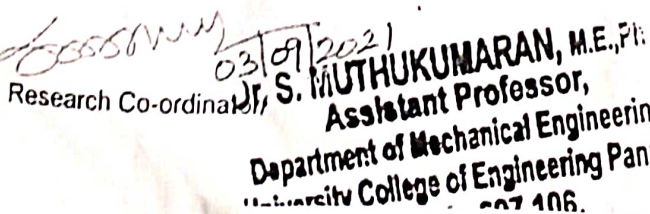 03/09/2021
Research Co-ordinator
Dr. S. MUTHUKUMARAN, M.E.,Ph
Assistant Professor,
Department of Mechanical Engineerin
University College of Engineering Pan
607 106.